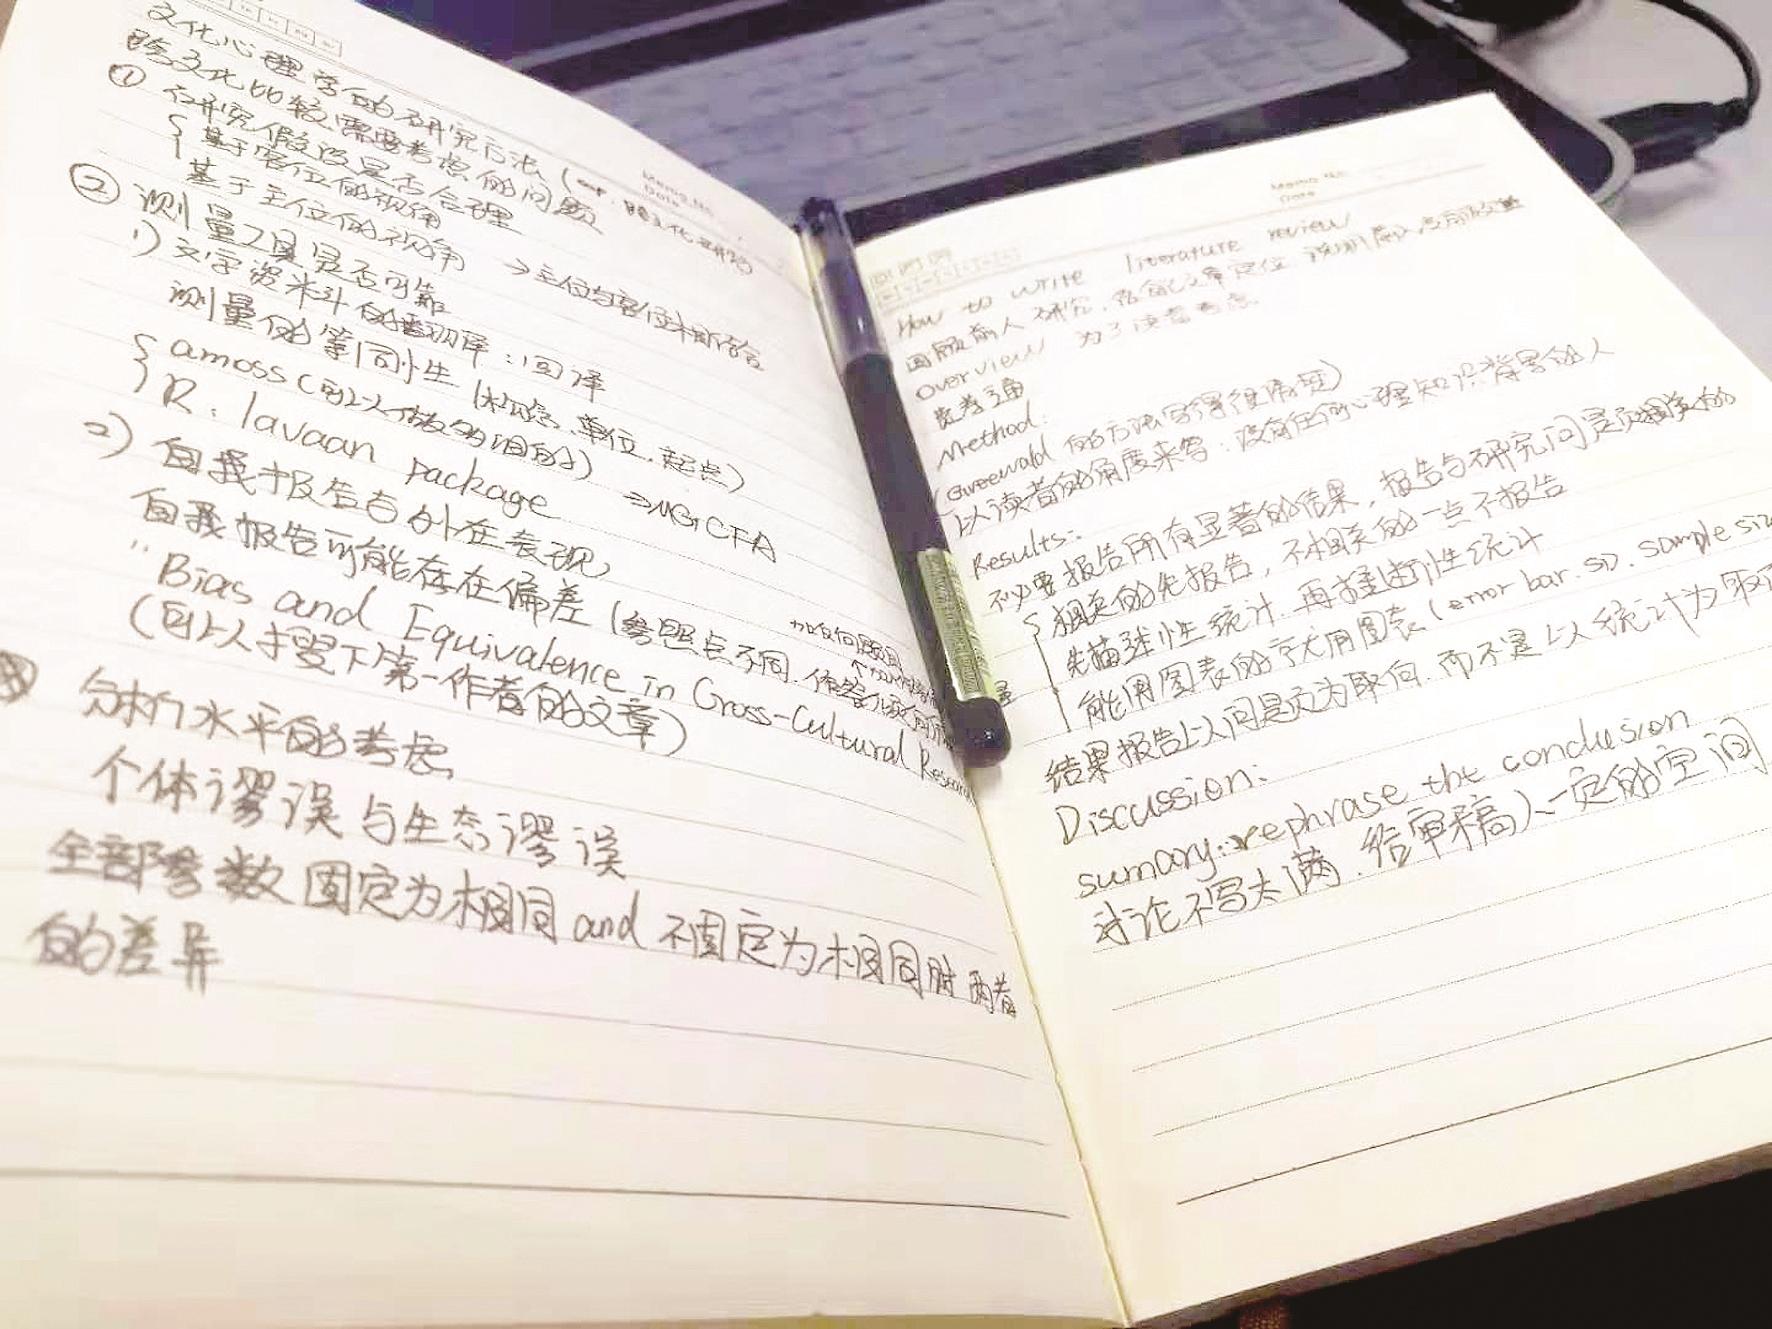 文化心理学的研究方法（跨文化研究）
跨文化比较需要考虑的问题
① 研究假设是否合理
基于客位的视角
基于主位的视角 → 主位与客位相结合
② 测量工具是否可靠
1) 文字资料的翻译：回译
测量的等同性（概念、单位、起点）
amoss（可以人做的目的） → MGCFA
R. lavaan package
2) 自我报告与外在表现
自我报告可能存在偏差（参照点不同，
"Bias and Equivalence in Cross-Cultural Research
（可以搜下第一作者的文章）
分析水平的考虑
个体谬误与生态谬误
全部参数固定为相同 and 不固定为相同时两者
的差异
Memo No.
Date
Memo No.
Date
How to write literature review
回顾前人研究，文章定位
overview 为了读者考虑
Method:
(Greenwald 的方法写得很清楚)
以读者的角度来写：没有任何心理知识背景的人
Results:
不必要报告所有显著的结果，报告与研究问题相关的
相关的先报告，不相关的一点不报告
先描述性统计，再推断性统计
能用图表的尽量用图表（error bar. SD. sample size
结果报告以问题为取向，而不是以统计为取向
Discussion:
summary: rephrase the conclusion
讨论不写太满，给审稿人一定的空间